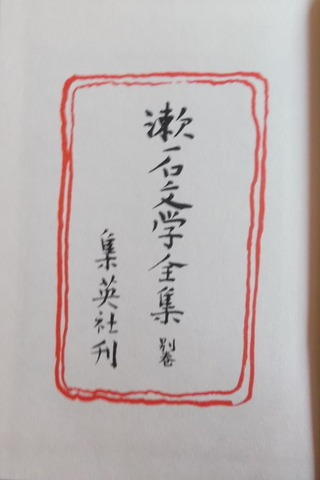 漱石文学全集 別巻
集英社刊